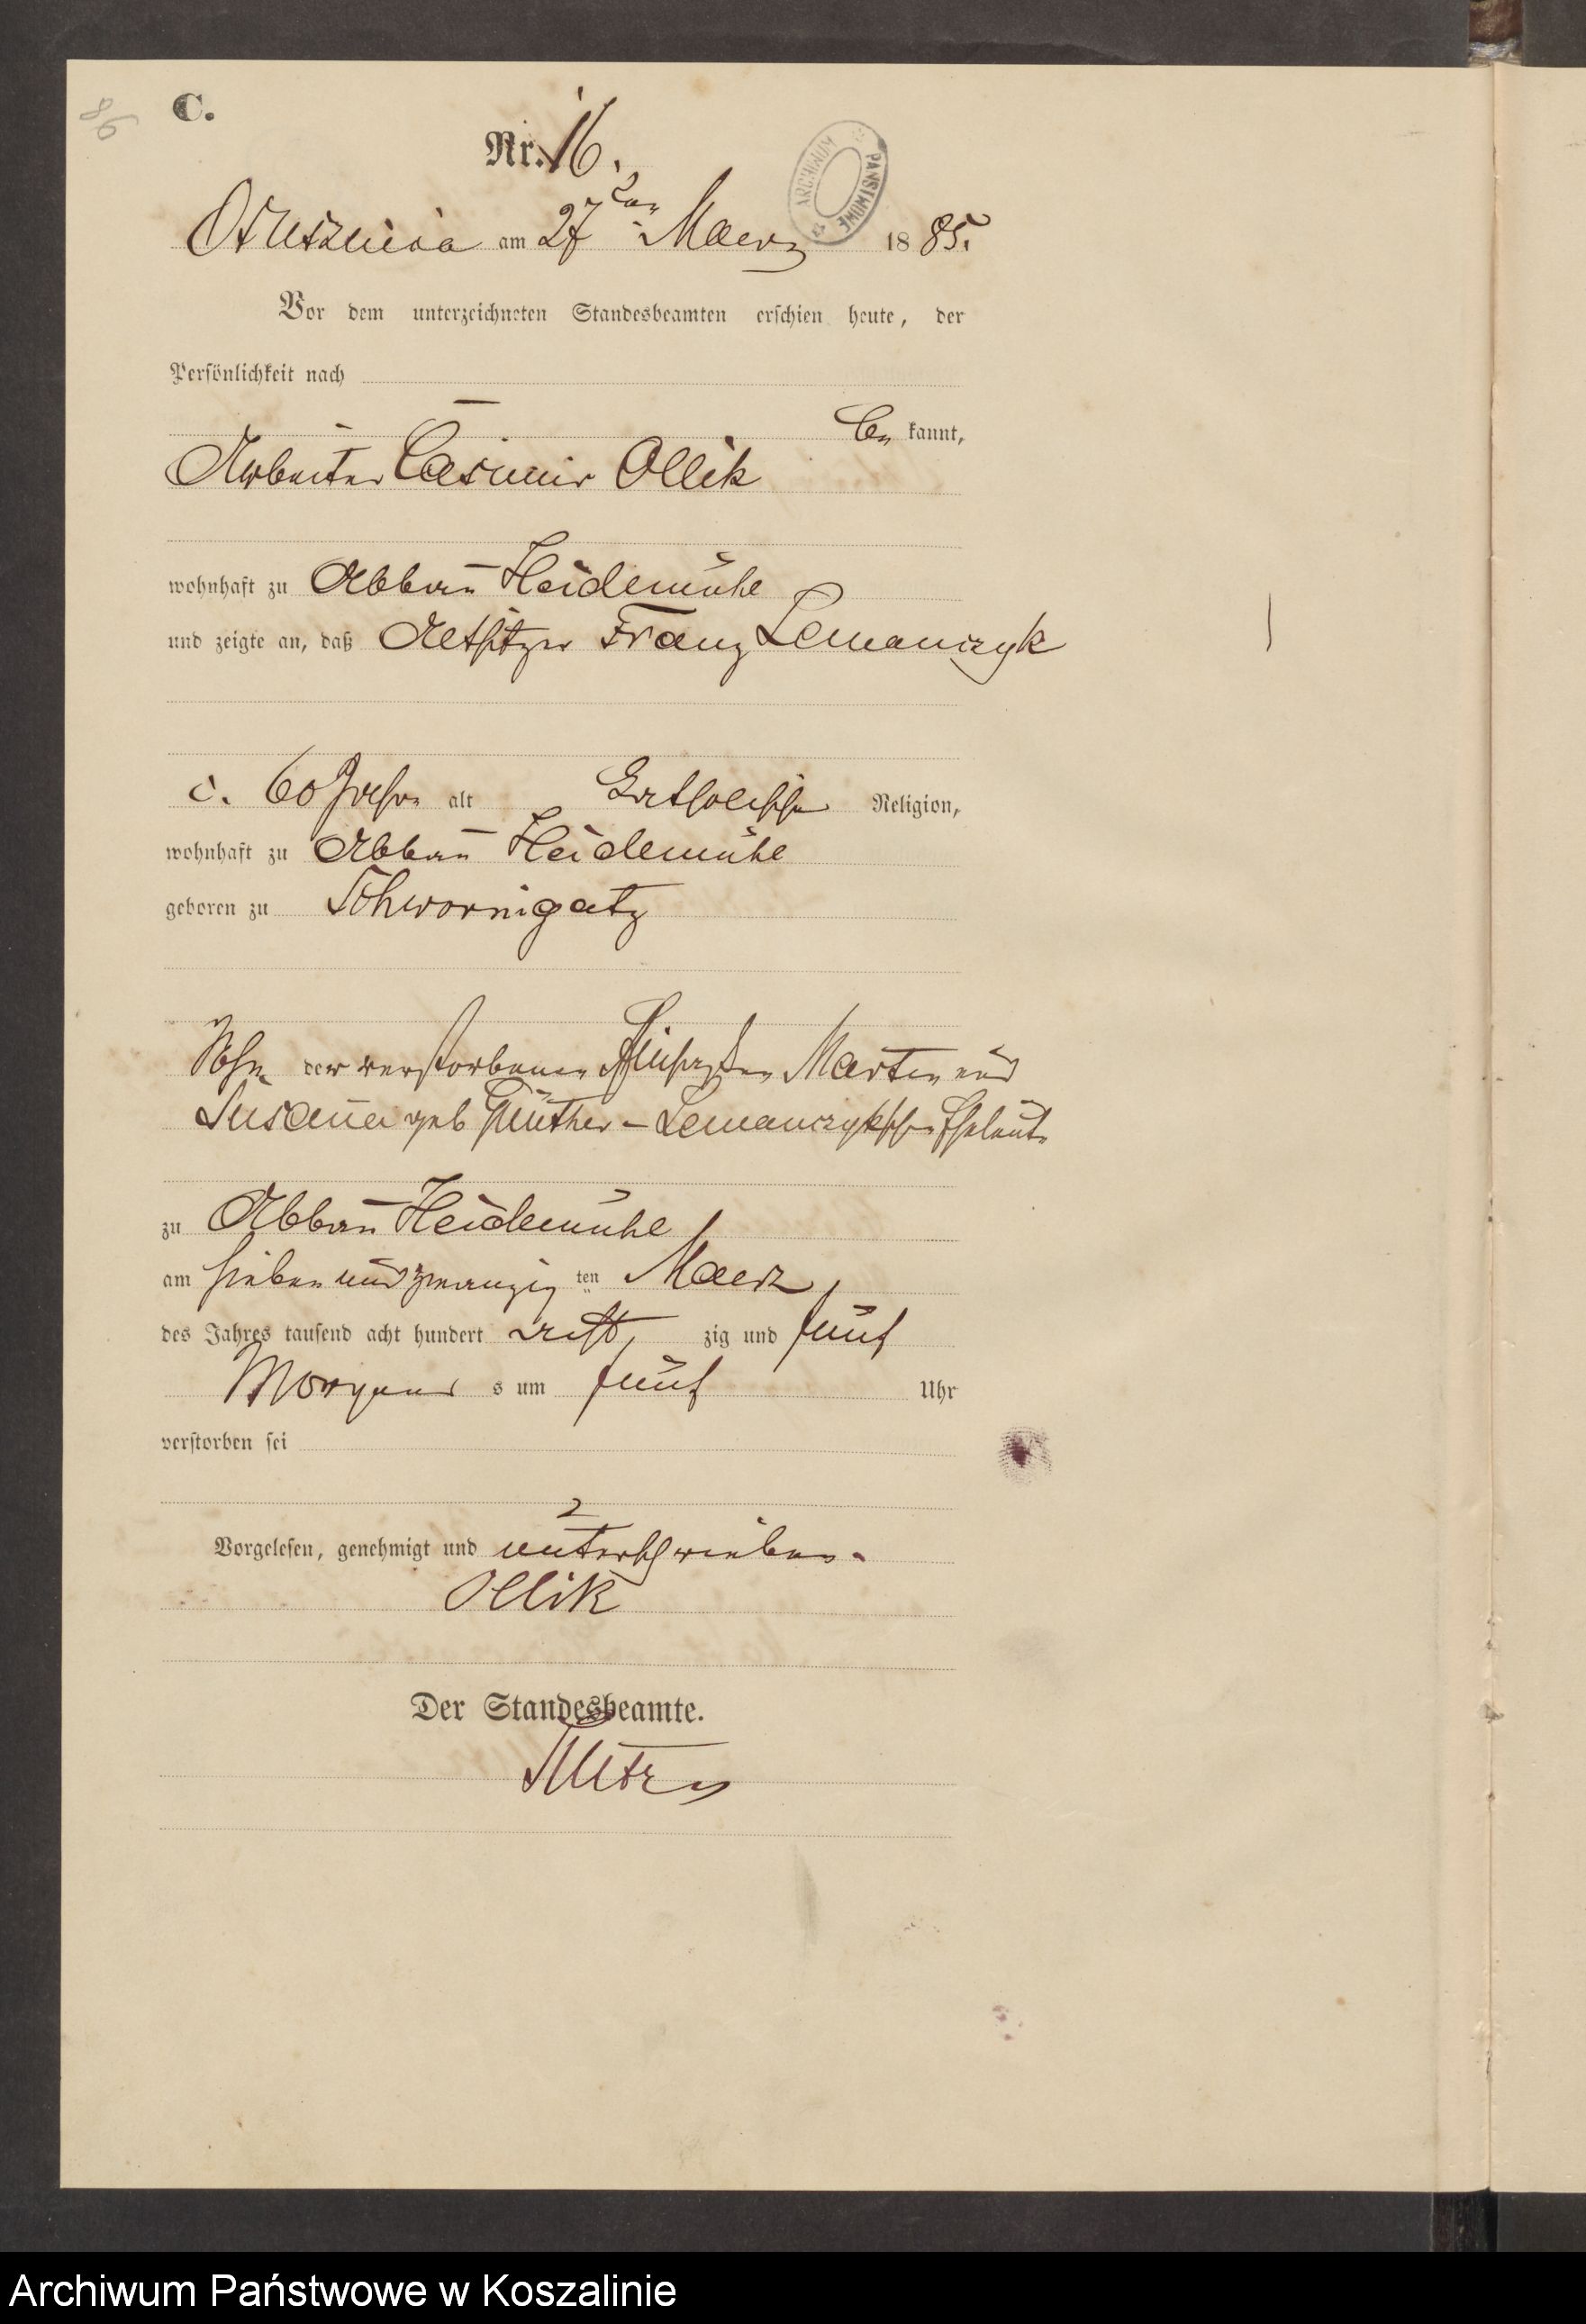 86
C.
Nr. 16.
ARCHIWUM PAŃSTWOWE
am 27ten Maerz 1885.
Vor dem unterzeichneten Standesbeamten erschien heute, der
Persönlichkeit nach
be kannt,
Arbeiter Casimir Ollik
wohnhaft zu Abbau Heidemühl
und zeigte an, daß Altsitzer Franz Lemanczyk
c. 60 Jahre alt Katholischer Religion,
wohnhaft zu Abbau Heidemühl
geboren zu Schwornigatz
Sohn der verstorbenen Martin und
Susanna geb Günther - Lemanczykschen Eheleute
zu Abbau Heidemühl
am sieben und zwanzig ten Maerz
des Jahres tausend acht hundert acht zig und fünf
Morgens s um fünf Uhr
verstorben sei
Vorgelesen, genehmigt und unterschrieben.
Ollik
Der Standesbeamte.
Archiwum Państwowe w Koszalinie